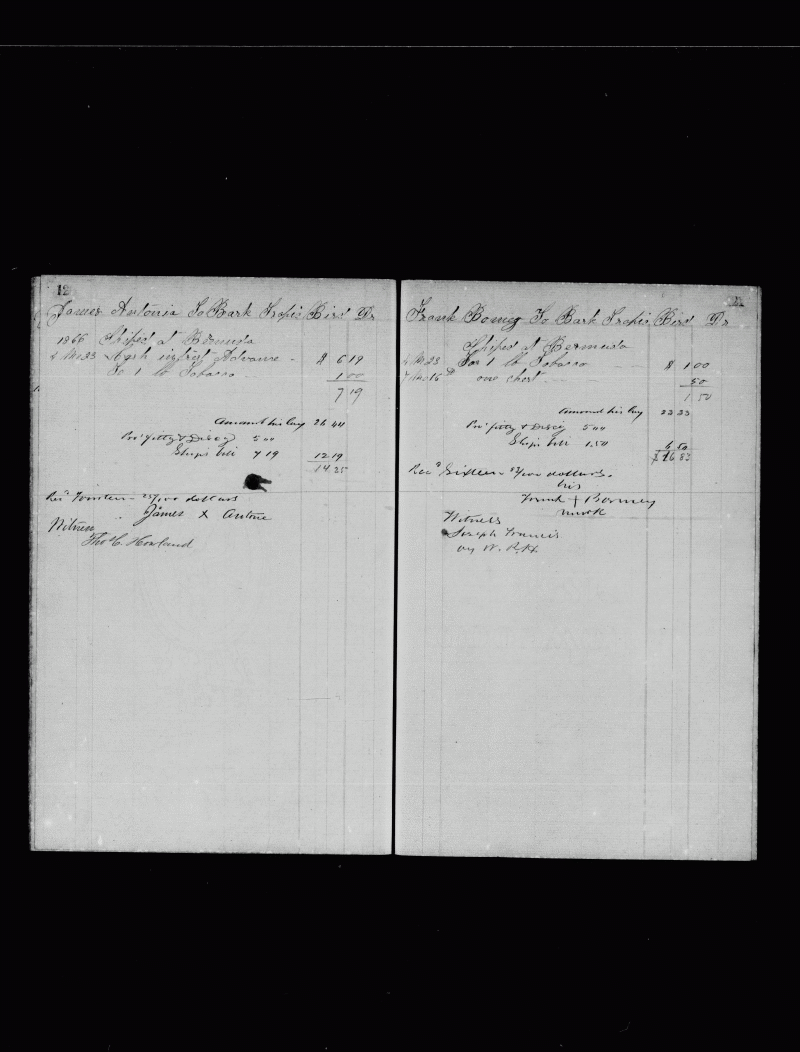 12
James Antonia To Bark Tropic Bird Dr
1866 Shiped at Bermuda
Mo 23 Cash in first Advance - $ 6 19
To 1 lb Tobacco 1 00
7 19
Amount his Lay 26 44
5 00
Ships bill 7 19 12 19
14 25
Rec'd Fourteen 25/100 dollars
James X Antone
Witness
Thos C. Howland
Frank To Bark Tropic Bird Dr
Shiped at Bermuda
Mo 23 For 1 lb Tobacco $ 1 00
7 Mo 16th one chest 50
1 50
Amount his Lay 23 33
5 00
Ships bill 1.50 6 50
$ 16 83
Rec'd Sixteen 83/100 dollars.
his
Frank + Bormey
mark
Witness
Joseph Francis
by W. R. H.